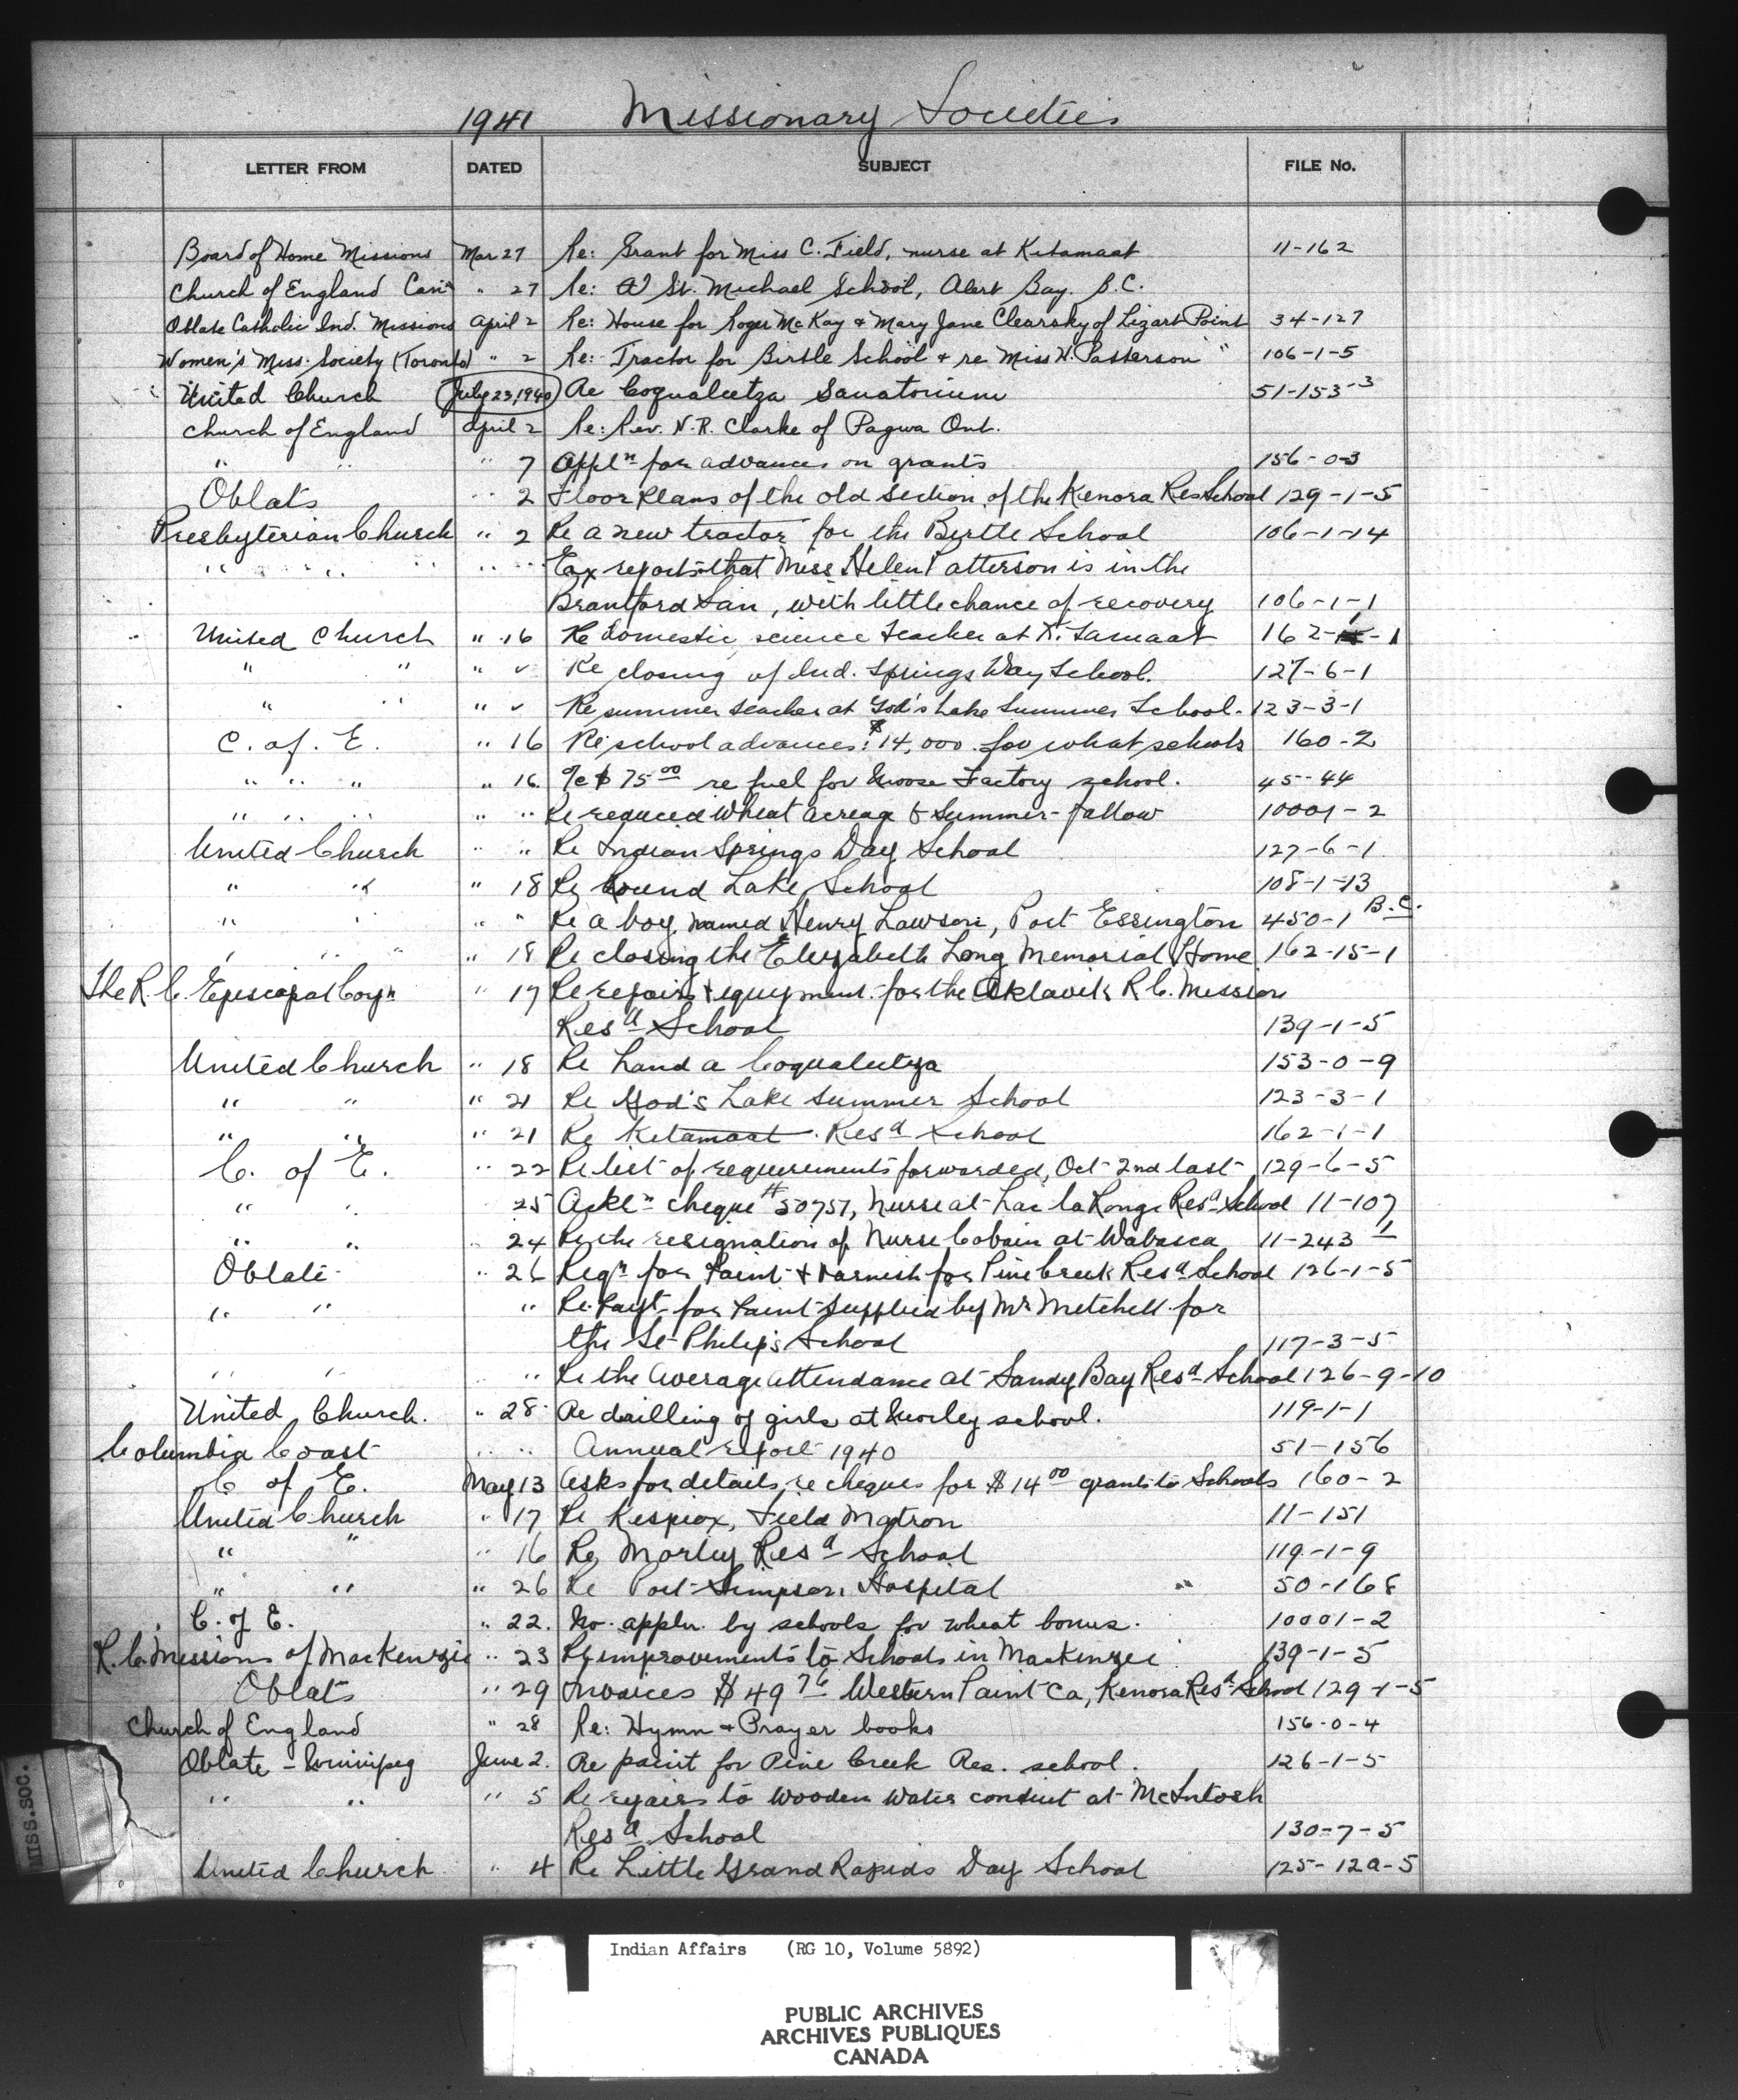 1941 Missionary Societies
LETTER FROM DATED SUBJECT FILE No.
Board of Home Missions Mar 27 Re: Grant for Miss C. Field, nurse at Kitamaat 11-162
Church of England Can. " 27 Re: St. Michael School, Alert Bay. B.C.
Oblate Catholic Ind. Missions April 2 Re: House for Roger McKay & Mary Jane Clearsky of Lizart Point 34-127
Women's Miss. Society (Toronto) " 2 Re: Tractor for Birtle School & re Miss H. Patterson " 106-1-5
United Church July 23, 1940 Re Coqualeetza Sanatorium 51-153-3
Church of England April 2 Re: Rev. N.R. Clarke of Pagwa Ont.
" " " 7 Appln for advances on grants 156-0-3
Oblats " 2 Floor Plans of the old section of the Kenora Res School 129-1-5
Presbyterian Church " 2 Re a new tractor for the Birtle School 106-1-14
" " " " " reports that Miss Helen Patterson is in the
Brantford San, with little chance of recovery 106-1-1
United Church " 16 Re domestic science teacher at Kitamaat 162- -1
" " " " Re closing of Ind. Springs Day School. 127-6-1
" " " " Re summer teacher at God's Lake Summer School. 123-3-1
C. of. E. " 16 Re school advances: $14,000. for what schools 160-2
" " " " 16. a/c $75.00 re fuel for Moose Factory school. 45-44
" " " " " Re reduced Wheat acreage & Summer-fallow 10001-2
United Church " " Re Indian Springs Day School 127-6-1
" " " 18 Re Round Lake School 108-1-13
" " " " Re a boy named Henry Lawson, Port Essington 450-1 B.C.
" " " " 18 Re closing the Elizabeth Long Memorial Home 162-15-1
The R.C. Episcopal Corpn " 17 Re repairs & equipment for the Aklavik R.C. Mission
Resd School 139-1-5
United Church " 18 Re Land a Coqualeetza 153-0-9
" " " 21 Re God's Lake Summer School 123-3-1
" " " 21 Re Kitamaat Resd School 162-1-1
C. of E. " 22 Re list of requirements forwarded, Oct 2nd last 129-6-5
" " 25 Ackln cheque #50757, Nurse at Lac la Ronge Resd School 11-107
" " " 24 Re the resignation of Nurse Cobain at Wabasca 11-243-1
Oblate " 26 Reqn for Paint & Varnish for Pine Creek Resd School 126-1-5
" " " Re. Payt. for Paint supplied by Mr Mitchell for
the St Philip's School 117-3-5
" " " Re the Average attendance at Sandy Bay Resd School 126-9-10
United Church. " 28 Re drilling of girls at Morley school. 119-1-1
Columbia Coast " " Annual report 1940 51-156
C of E. May 13 Asks for details re cheques for $14.00 grants to Schools 160-2
United Church " 17 Re Kispiox, Field Matron 11-151
" " " 16 Re Morley Resd School 119-1-9
" " " 26 Re Port Simpson Hospital 50-168
C. of E. " 22. No. appln. by schools for wheat bonus. 10001-2
R.C. Missions of MacKenzie " 23 Re improvements to Schools in MacKenzie 139-1-5
Oblats " 29 Invoices $49.76 Western Paint Co, Kenora Resd School 129-1-5
Church of England " 28 Re: Hymn & Prayer books 156-0-4
Oblate - Winnipeg June 2. Re paint for Pine Creek Res. school. 126-1-5
" " " 5 Re repairs to wooden water conduit at McIntosh
Resd School 130-7-5
United Church " 4 Re Little Grand Rapids Day School 125-12a-5
MISS.SOC.
Indian Affairs (RG 10, Volume 5892)
PUBLIC ARCHIVES
ARCHIVES PUBLIQUES
CANADA